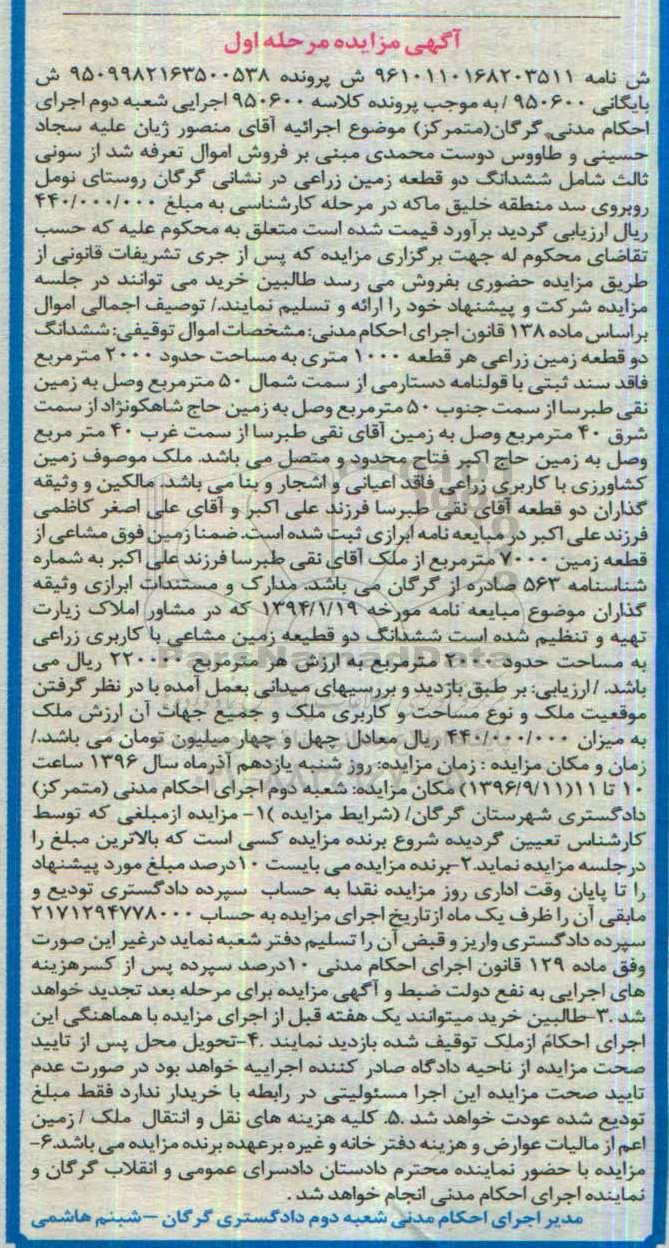 آگهی مزایده مرحله اول
ش نامه ۹۶۱۰۱۱۰۱۶۸۲۰۳۵۱۱ ش پرونده ۹۵۰۹۹۸۲۱۶۳۵۰۰۵۳۸ ش
بایگانی ۹۵۰۶۰۰ / به موجب پرونده کلاسه ۹۵۰۶۰۰ اجرایی شعبه دوم اجرای
احکام مدنی گرگان(متمرکز) موضوع اجرائیه آقای منصور ژیان علیه سجاد
حسینی و طاووس دوست محمدی مبنی بر فروش اموال تعرفه شد از سونی
ثالث شامل ششدانگ دو قطعه زمین زراعی در نشانی گرگان روستای نومل
روبروی سد منطقه خلیق ماکه در مرحله کارشناسی به مبلغ ۴۴۰/۰۰۰/۰۰۰
ریال ارزیابی گردید برآورد قیمت شده است متعلق به محکوم علیه که حسب
تقاضای محکوم له جهت برگزاری مزایده که پس از جری تشریفات قانونی از
طریق مزایده حضوری بفروش می رسد طالبین خرید می توانند در جلسه
مزایده شرکت و پیشنهاد خود را ارائه و تسلیم نمایند./ توصیف اجمالی اموال
براساس ماده ۱۳۸ قانون اجرای احکام مدنی: مشخصات اموال توقیفی: ششدانگ
دو قطعه زمین زراعی هر قطعه ۱۰۰۰ متری به مساحت حدود ۲۰۰۰ مترمربع
فاقد سند ثبتی با قولنامه دستارمی از سمت شمال ۵۰ مترمربع وصل به زمین
نقی طبرسا از سمت جنوب ۵۰ مترمربع وصل به زمین حاج شاهکونژاد از سمت
شرق ۴۰ مترمربع وصل به زمین آقای نقی طبرسا از سمت غرب ۴۰ متر مربع
وصل به زمین حاج اکبر فتاح محدود و متصل می باشد. ملک موصوف زمین
کشاورزی با کاربری زراعی فاقد اعیانی و اشجار و بنا می باشد. مالکین و وثیقه
گذاران دو قطعه آقای نقی طبرسا فرزند علی اکبر و آقای علی اصغر کاظمی
فرزند علی اکبر در مبایعه نامه ابرازی ثبت شده است. ضمنا زمین فوق مشاعی از
قطعه زمین ۷۰۰۰ مترمربع از ملک آقای نقی طبرسا فرزند علی اکبر به شماره
شناسنامه ۵۶۳ صادره از گرگان می باشد. مدارک و مستندات ابرازی وثیقه
گذاران موضوع مبایعه نامه مورخه ۱۳۹۴/۱/۱۹ که در مشاور املاک زیارت
تهیه و تنظیم شده است ششدانگ دو قطیعه زمین مشاعی با کاربری زراعی
به مساحت حدود ۲۰۰۰ مترمربع به ارزش هر مترمربع ۲۲۰۰۰۰ ریال می
باشد. / ارزیابی: بر طبق بازدید و بررسیهای میدانی بعمل آمده با در نظر گرفتن
موقعیت ملک و نوع مساحت و کاربری ملک و جمیع جهات آن ارزش ملک
به میزان ۴۴۰/۰۰۰/۰۰۰ ریال معادل چهل و چهار میلیون تومان می باشد./
زمان و مکان مزایده : زمان مزایده: روز شنبه یازدهم آذرماه سال ۱۳۹۶ ساعت
۱۰ تا ۱۱(۱۳۹۶/۹/۱۱) مکان مزایده: شعبه دوم اجرای احکام مدنی (متمرکز)
دادگستری شهرستان گرگان/ (شرایط مزایده )۱- مزایده ازمبلغی که توسط
کارشناس تعیین گردیده شروع برنده مزایده کسی است که بالاترین مبلغ را
در جلسه مزایده نماید.۲-برنده مزایده می بایست ۱۰درصد مبلغ مورد پیشنهاد
را تا پایان وقت اداری روز مزایده نقدا به حساب سپرده دادگستری تودیع و
مابقی آن را ظرف یک ماه از تاریخ اجرای مزایده به حساب ۲۱۷۱۲۹۴۷۷۸۰۰۰
سپرده دادگستری واریز و قبض آن را تسلیم دفتر شعبه نماید در غیر این صورت
وفق ماده ۱۲۹ قانون اجرای احکام مدنی ۱۰درصد سپرده پس از کسر هزینه
های اجرایی به نفع دولت ضبط و آگهی مزایده برای مرحله بعد تجدید خواهد
شد .۳-طالبین خرید میتوانند یک هفته قبل از اجرای مزایده با هماهنگی این
اجرای احکام ازملک توقیف شده بازدید نمایند .۴-تحویل محل پس از تایید
صحت مزایده از ناحیه دادگاه صادر کننده اجراییه خواهد بود در صورت عدم
تایید صحت مزایده این اجرا مسئولیتی در رابطه با خریدار ندارد فقط مبلغ
تودیع شده عودت خواهد شد .۵. کلیه هزینه های نقل و انتقال ملک / زمین
اعم از مالیات عوارض و هزینه دفتر خانه و غیره بر عهده برنده مزایده می باشد.۶-
مزایده با حضور نماینده محترم دادستان دادسرای عمومی و انقلاب گرگان و
نماینده اجرای احکام مدنی انجام خواهد شد .
مدیر اجرای احکام مدنی شعبه دوم دادگستری گرگان –شبنم هاشمی
ParsNamadData